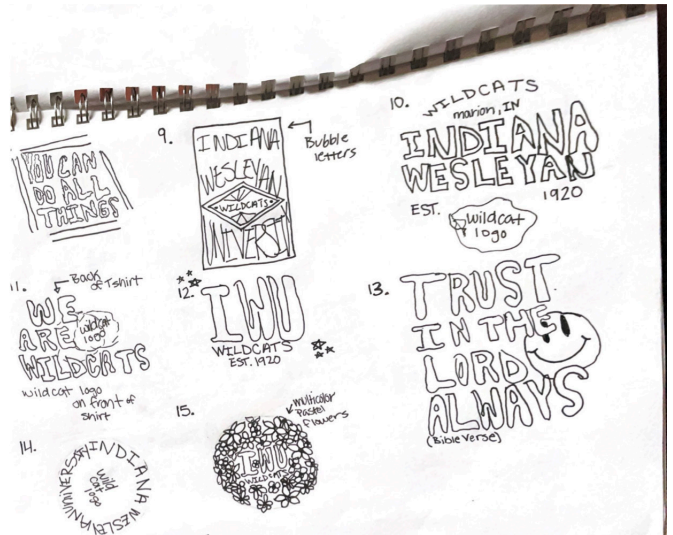 YOU CAN
DO ALL
THINGS
9.
INDIANA
WESLEYAN
WILDCATS
UNIVERSI
Bubble
letters
10.
WILDCATS
marion, IN
INDIANA
WESLEYAN
EST.
1920
wildcat
logo
11.
Back
of Tshirt
WE
ARE
wildcat
logo
WILDCATS
wildcat logo
on front of
shirt
12.
IWU
WILDCATS
EST. 1920
13.
TRUST
IN THE
LORD
ALWAYS
(Bible verse)
14.
INDIANA WESLEYAN UNIVERSITY
Wild
cat
logo
15.
multicolor
Pastel
flowers
IWU
WILDCATS